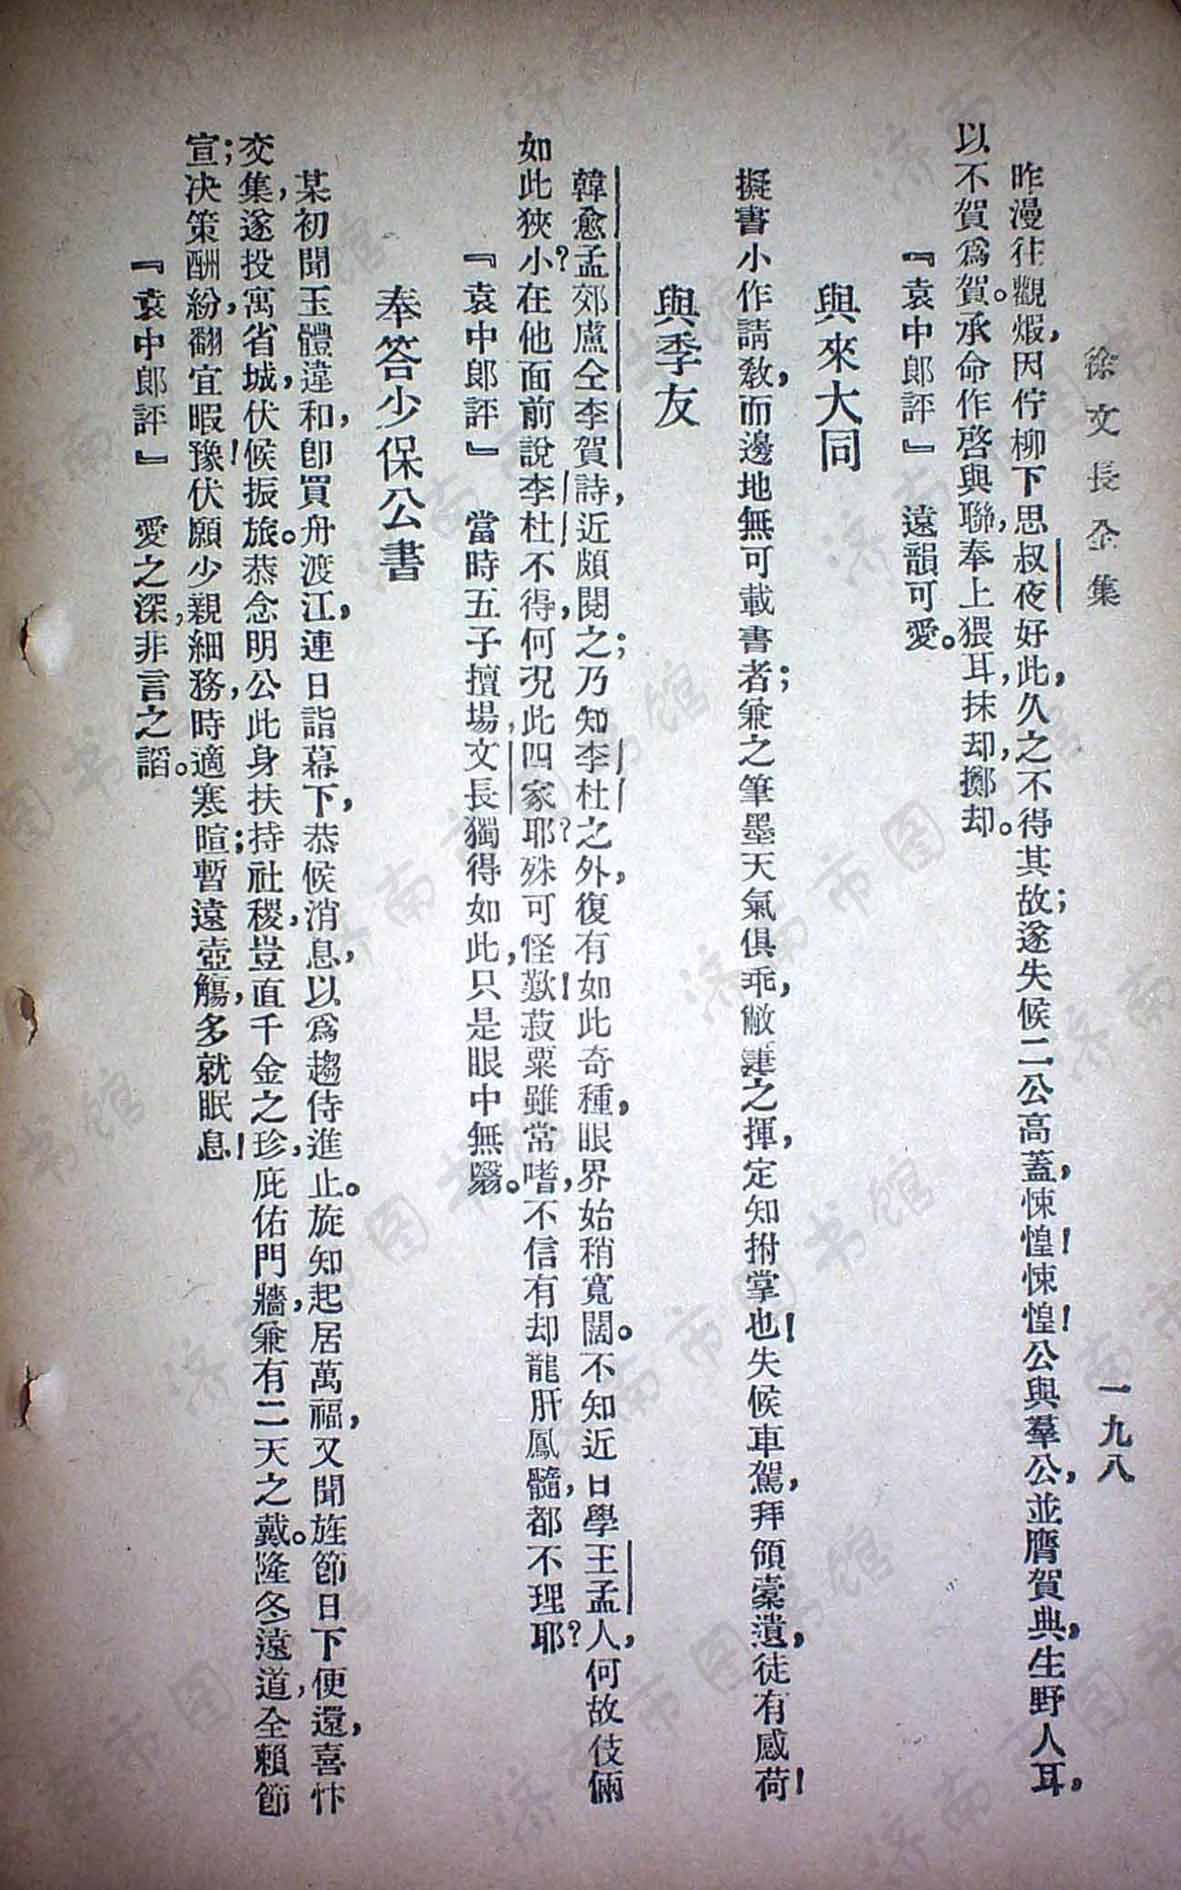 徐文長全集　一九八
昨漫往觀煅，因佇柳下思叔夜好此，久之不得其故；遂失候二公高蓋，悚惶！悚惶！公與羣公，並膺賀典，生野人耳，
以不賀爲賀。承命作啓與聯，奉上猥耳，抹却，擲却。
『袁中郞評』　遠韻可愛。
與來大同
擬書小作請敎，而邊地無可載書者；兼之筆墨天氣俱乖，敝之揮，定知拊掌也！失候車駕，拜領槖遺，徒有感荷！
與季友
韓愈孟郊盧仝李賀詩，近頗閱之；乃知李杜之外，復有如此奇種，眼界始稍寬闊。不知近日學王孟人，何故伎倆
如此狹小？在他面前說李杜不得，何況此四家耶？殊可怪歎！菽粟雖常嗜，不信有却龍肝鳳髓，都不理耶？
『袁中郞評』　當時五子擅場，文長獨得如此，只是眼中無翳。
奉答少保公書
某初聞玉體違和，卽買舟渡江，連日詣幕下，恭候消息，以爲趨侍進止。旋知起居萬福，又聞旌節日下便還，喜忭
交集，遂投寓省城，伏候振旅。恭念明公此身扶持社稷，豈直千金之珍，庇佑門牆，兼有二天之戴。隆冬遠道，全賴節
宣；決策酬紛，翻宜暇豫！伏願少親細務，時適寒暄；暫遠壺觴，多就眠息！
『袁中郞評』　愛之深，非言之謟。